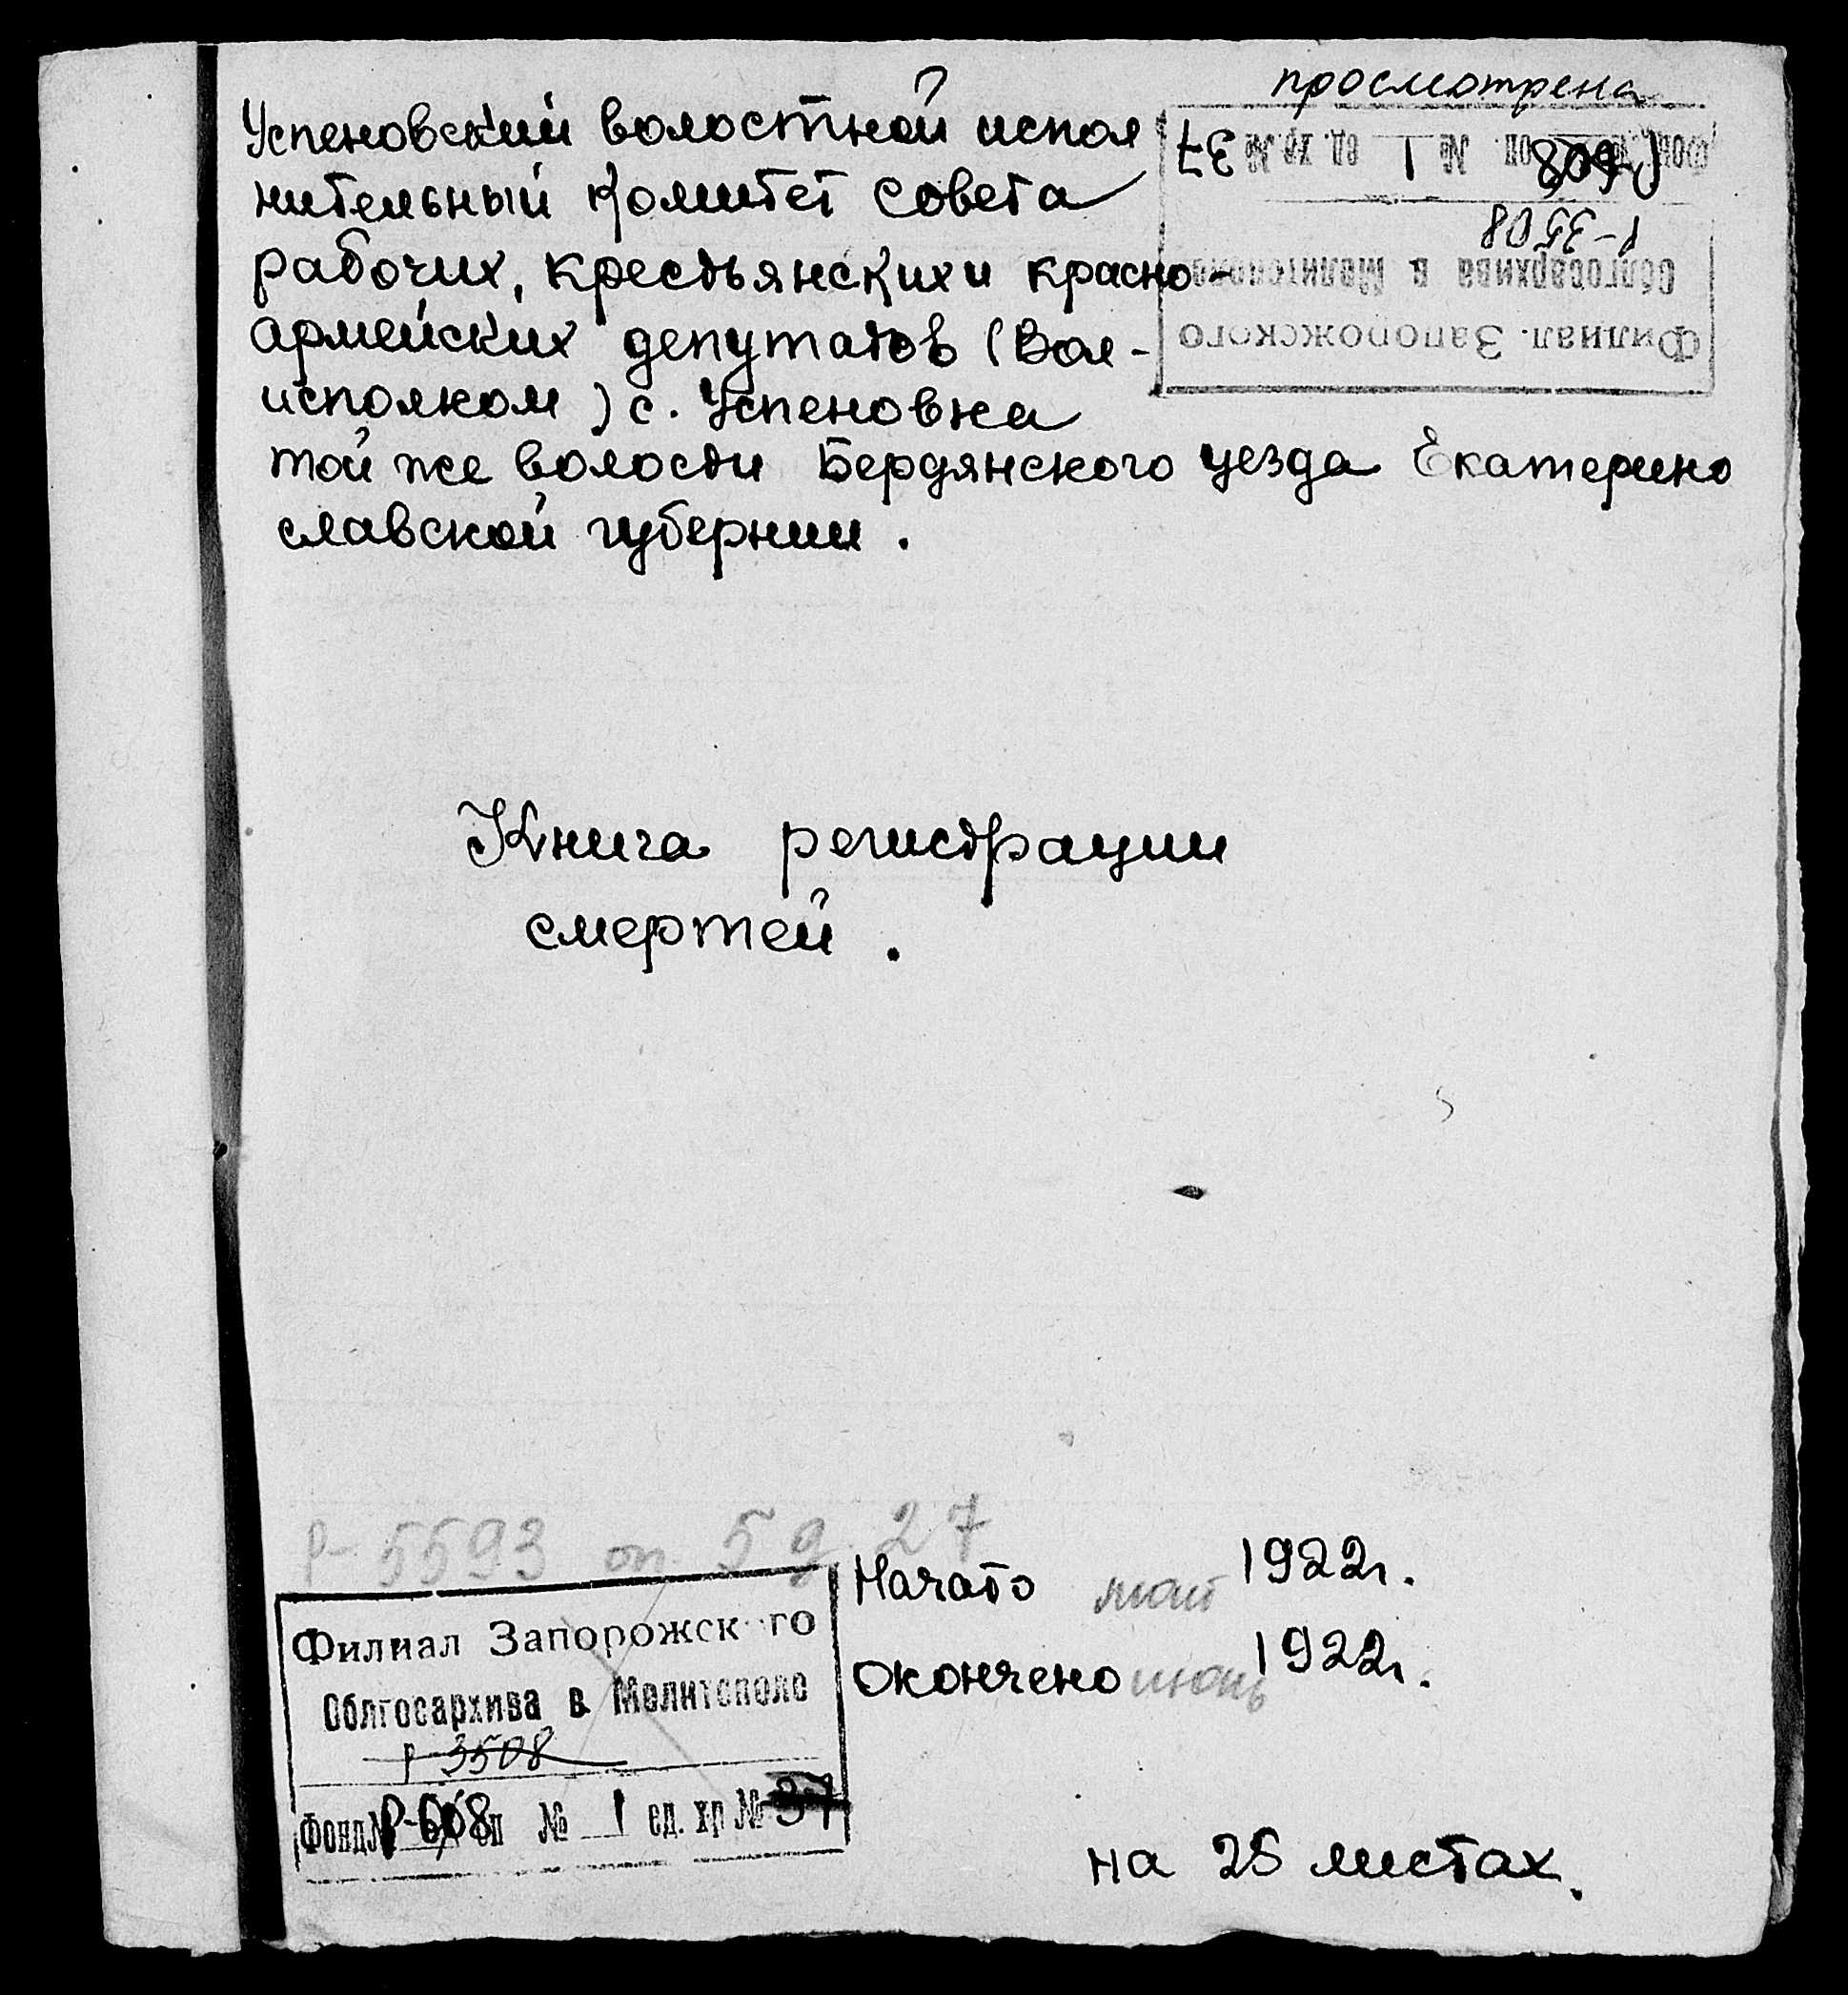 просмотрена
Успеновский волостной испол
нительный комитет совета
рабочих, крестьянских и красно-
армейских депутатов (Вол-
исполком) с. Успеновка
той же волости Бердянского уезда Екатерино
славской губернии.
Филиал Запорожского
Облгосархива в Мелитополе
Р-3508
Фонд № оп. № 1 ед. хр. № 37
Книга регистрации
смертей.
Р-5593 оп 5 д. 27
Начато май 1922г.
Окончено июнь 1922г.
Филиал Запорожск го
Облгосархива в Мелитополе
Р-3508
Фонд № Р-608 оп № 1 ед. хр № 37
на 25 листах.